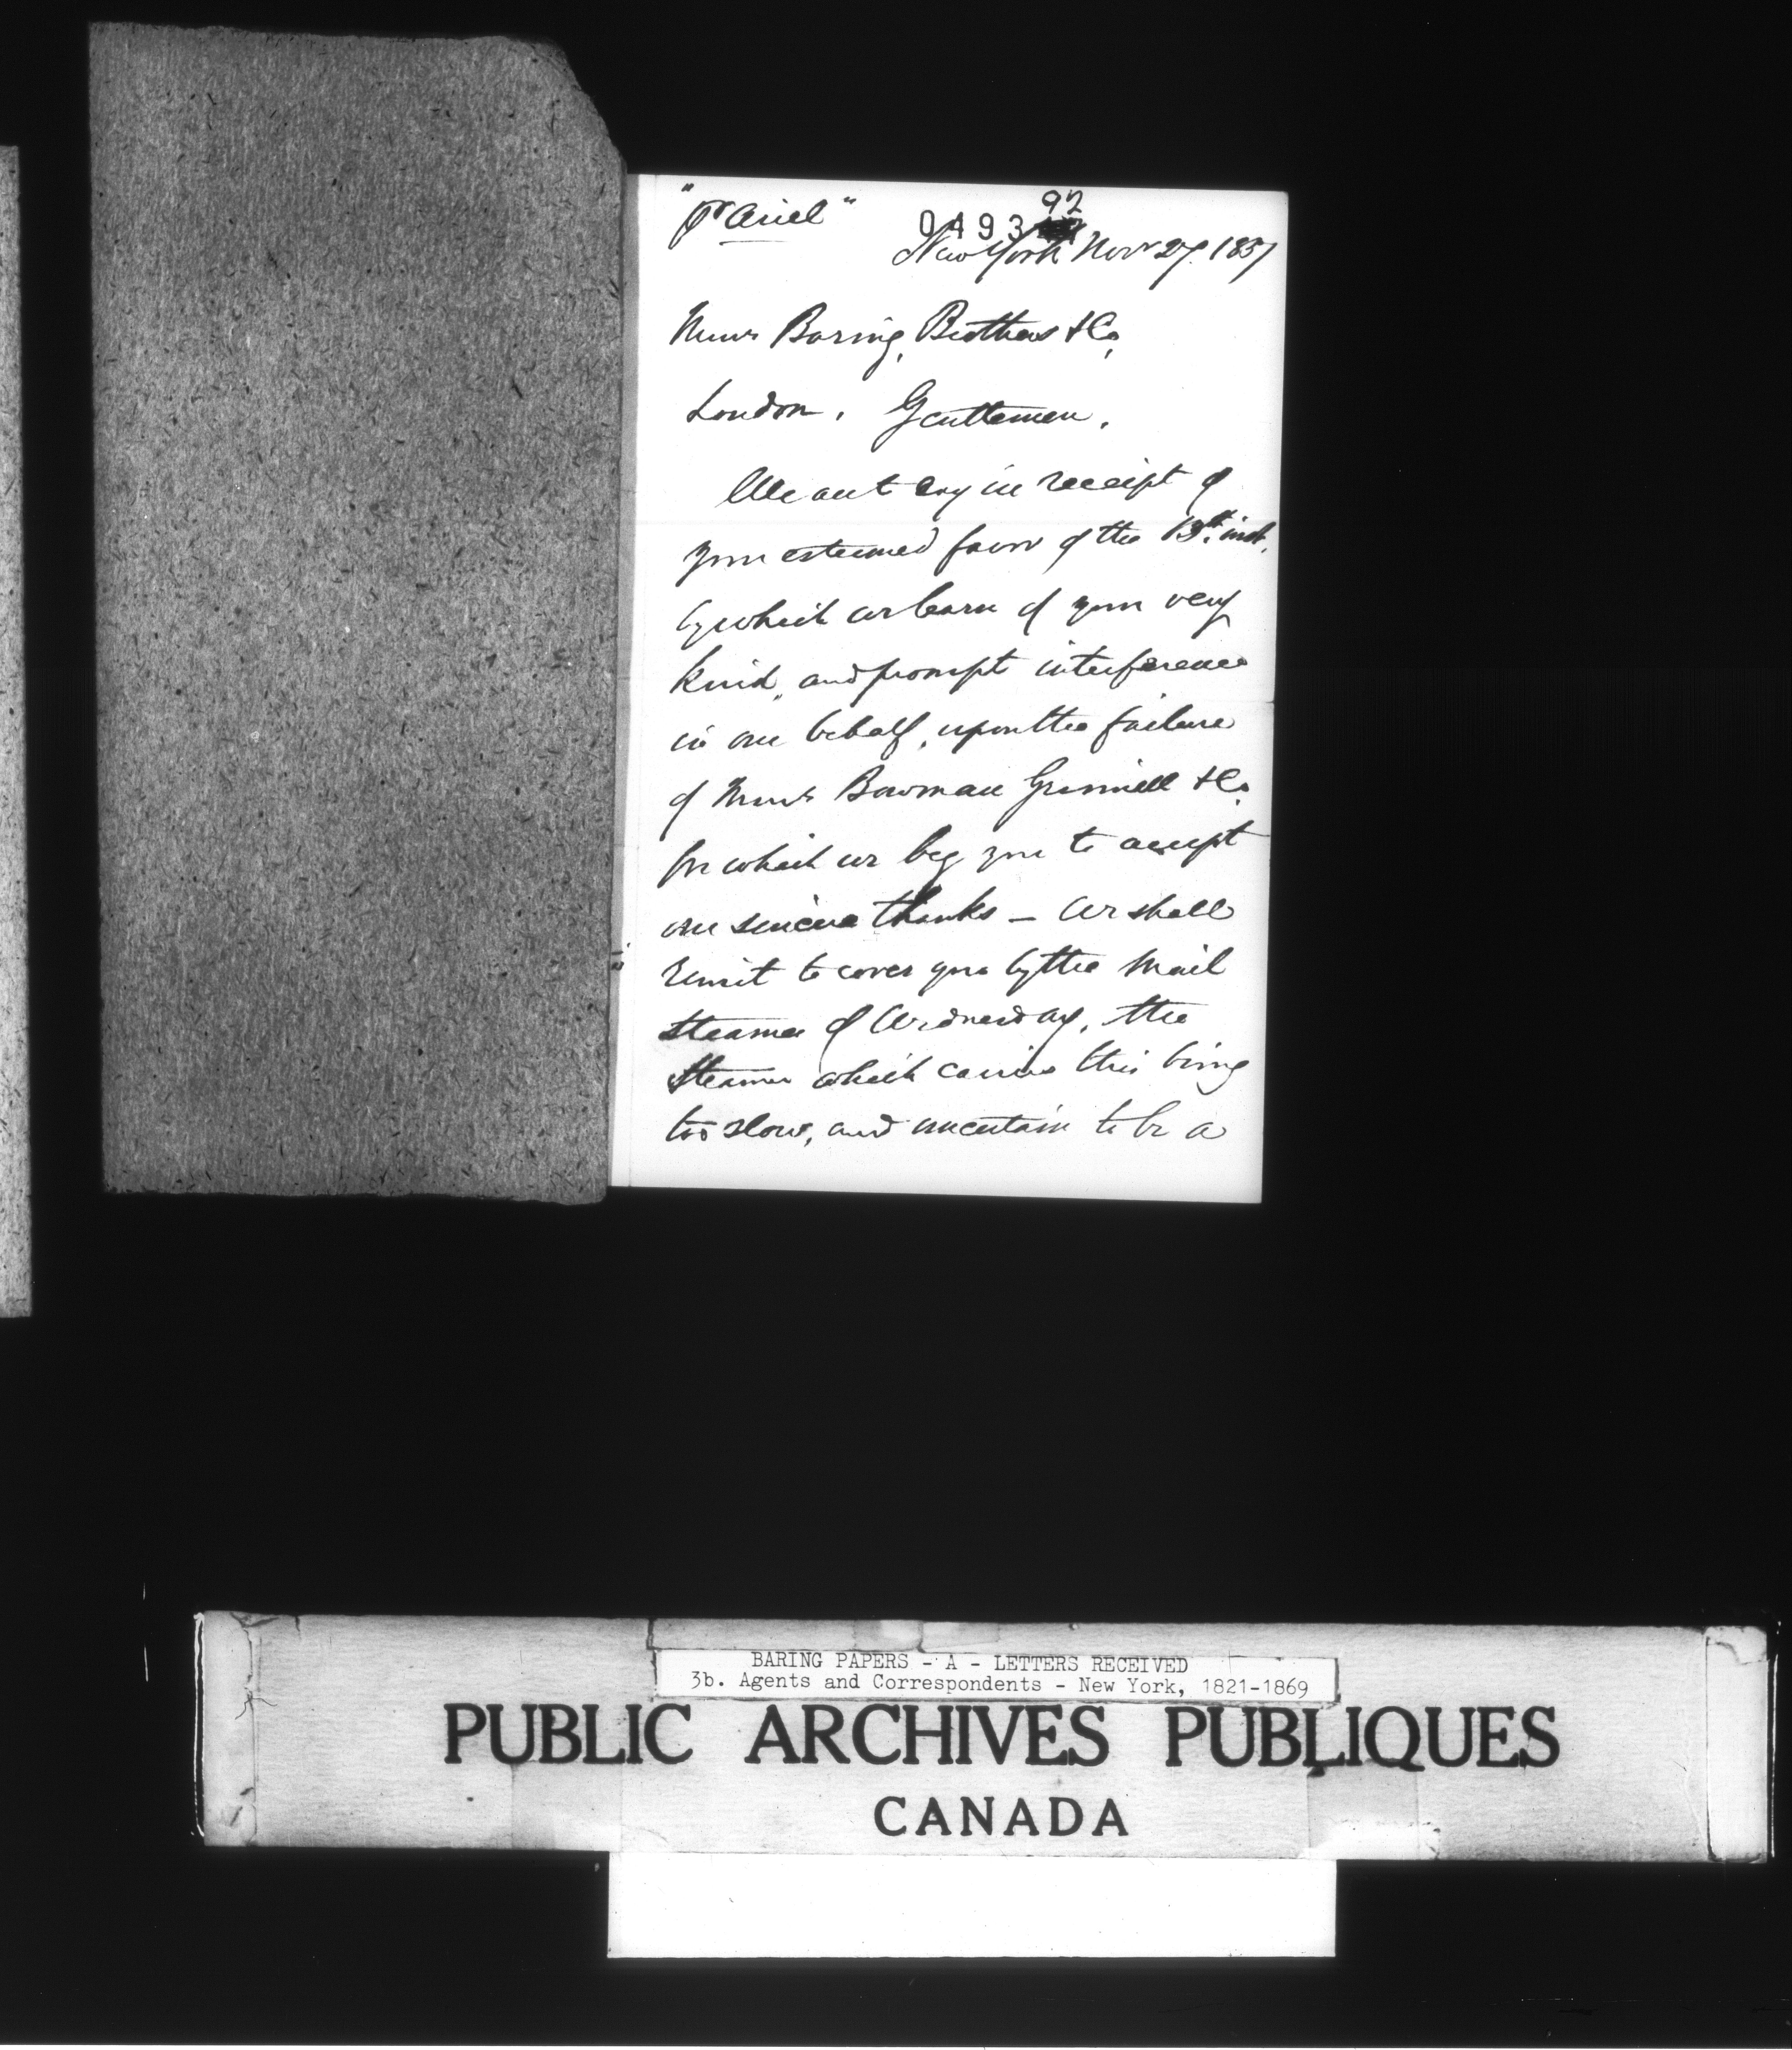 "pr Ariel"
049392
New York Nov 27. 1857
Messrs Baring, Brothers & Co,
London. Gentlemen.
We are in receipt of
your esteemed favor of the 13th. inst.
by which we learn of your very
kind, and prompt interference
in our behalf, upon the failure
of Messrs Bowman Grinnell & Co.
for which we beg you to accept
our sincere thanks — We shall
remit to cover you by the Mail
Steamer of Wednesday, the
Steamer which carries this being
too slow, and uncertain to be a
BARING PAPERS - A - LETTERS RECEIVED
3b. Agents and Correspondents - New York, 1821-1869
PUBLIC ARCHIVES PUBLIQUES
CANADA